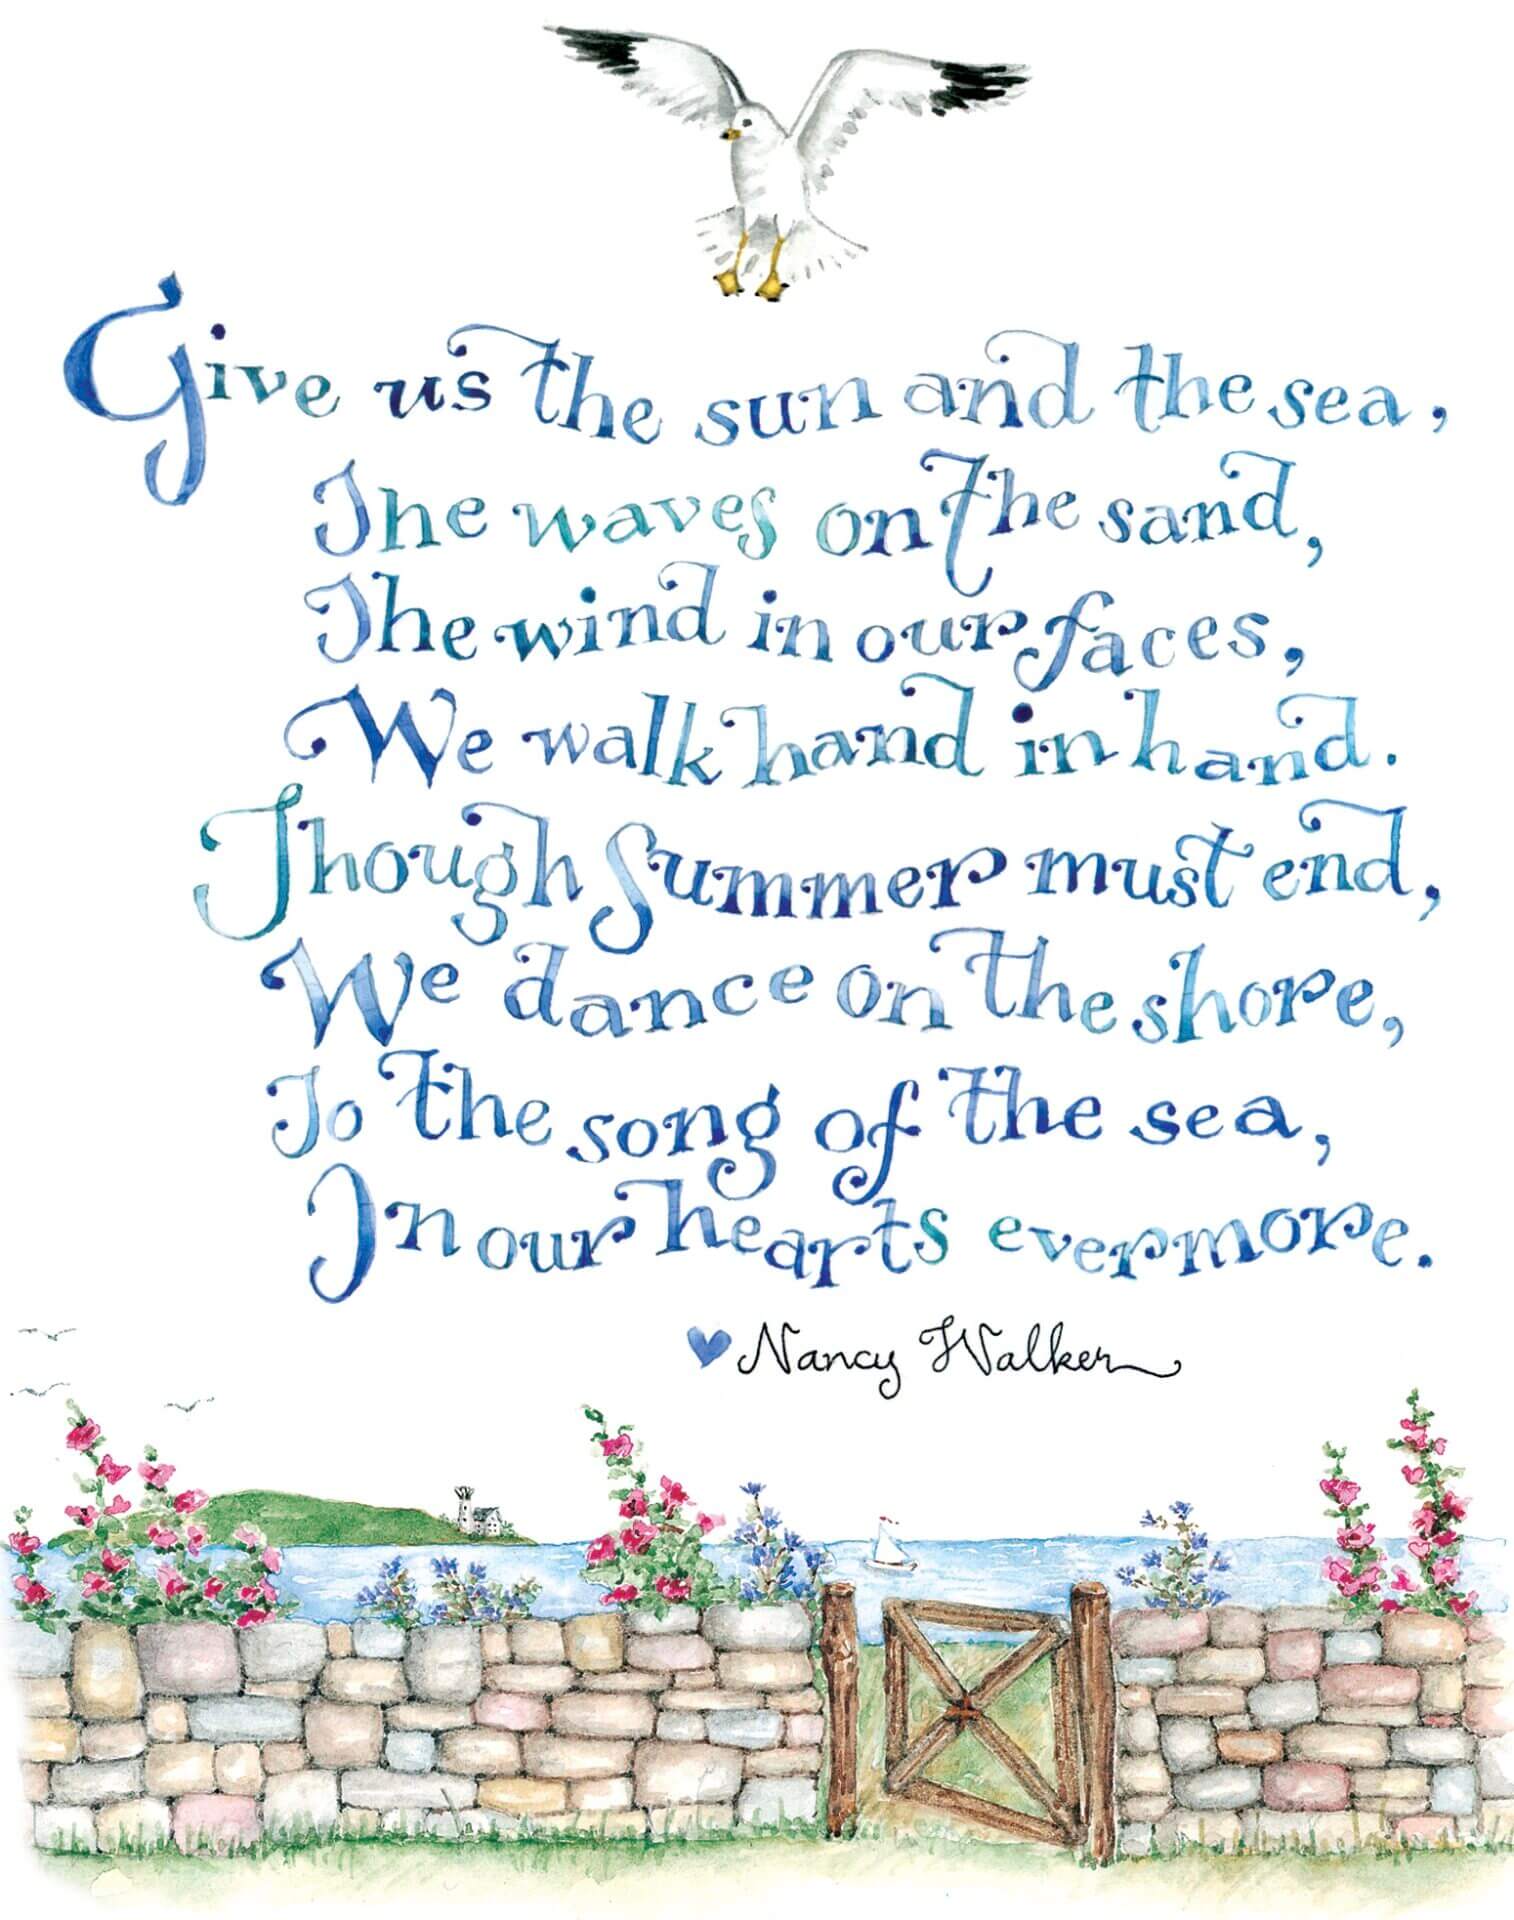 Give us the sun and the sea,
The waves on the sand,
The wind in our faces,
We walk hand in hand.
Though Summer must end,
We dance on the shore,
To the song of the sea,
In our hearts evermore.
Nancy Walker